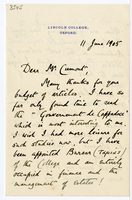 3545
LINCOLN COLLEGE,
OXFORD.
11 June 1905
Dear Mr. Cumont,
Many thanks for your
budget of articles. I have so
far only found time to read
the "Gouvernement de Cappadoce"
which is most interesting to me.
I wish I had more leisure for
such studies now, but I have
been appointed Bursar
of the College and am entirely
occupied in finance and the
management of estates